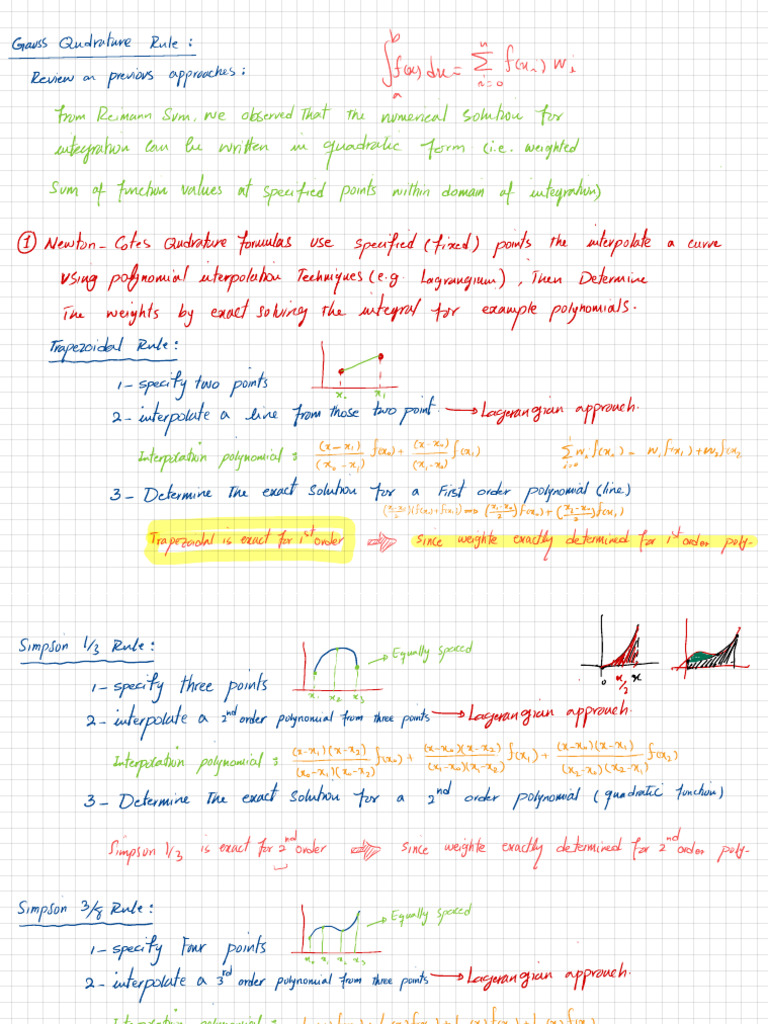 Gauss Qudrature Rule :
∫_a^b f(x) dx = Σ_{i=0}^n f(x_i) w_i
Review on previous approaches :
From Reimann Sum, we observed that the numerical solution for
integration can be written in quadratic form (i.e. weighted
Sum of function values at specified points within domain of integration)
① Newton-Cotes Qudrature formulas use specified (fixed) points the interpolate a curve
Using polynomial interpolation Techniques (e.g. Lagrangian), Then Determine
The weights by exact solving the integral for example polynomials.
Trapezoidal Rule :
1- specify two points
x₀ x₁
2- interpolate a line from those two point. → Lagerangian approach.
Interpolation polynomial : (x-x₁)/(x₀-x₁) f(x₀) + (x-x₀)/(x₁-x₀) f(x₁)
Σ_{i=0}^1 w_i f(x_i) = w₁ f(x₁) + w₂ f(x₂
3- Determine The exact Solution for a First order polynomial (line)
Trapezoidal is exact for 1st order ⇒ since weighte exactly determined for 1st order poly-
Simpson 1/3 Rule :
Equally spaced
x₁ x₂ x₃
0 x/2 x
1- specify three points
2- interpolate a 2nd order polynomial from three points → Lagerangian approach.
Interpolation polynomial : (x-x₁)(x-x₂)/(x₀-x₁)(x₀-x₂) f(x₀) + (x-x₀)(x-x₂)/(x₁-x₀)(x₁-x₂) f(x₁) + (x-x₀)(x-x₁)/(x₂-x₀)(x₂-x₁) f(x₂)
3- Determine The exact Solution for a 2nd order polynomial (quadratic function)
Simpson 1/3 is exact for 2nd order ⇒ since weighte exactly determined for 2nd order poly-
Simpson 3/8 Rule :
Equally spaced
x₀ x₁ x₂ x₃
1- specify Four points
2- interpolate a 3rd order polynomial from three points → Lagerangian approach.